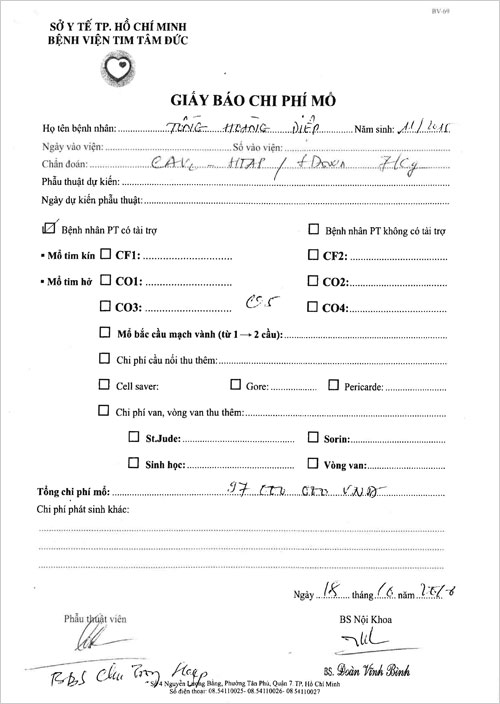 BV-69
SỞ Y TẾ TP. HỒ CHÍ MINH
BỆNH VIỆN TIM TÂM ĐỨC
GIẤY BÁO CHI PHÍ MỔ
Họ tên bệnh nhân: TỐNG HOÀNG DIỆP Năm sinh: 11/2015
Ngày vào viện: Số vào viện:
Chẩn đoán: CAVc - HTAP / +Down 7Kg
Phẫu thuật dự kiến:
Ngày dự kiến phẫu thuật:
☑ Bệnh nhân PT có tài trợ ☐ Bệnh nhân PT không có tài trợ
• Mổ tim kín ☐ CF1: ☐ CF2:
• Mổ tim hở ☐ CO1: ☐ CO2:
☐ CO3: ☐ CO4:
☐ Mổ bắc cầu mạch vành (từ 1 → 2 cầu):
☐ Chi phí cầu nối thu thêm:
☐ Cell saver: ☐ Gore: ☐ Pericarde:
☐ Chi phí van, vòng van thu thêm:
☐ St.Jude: ☐ Sorin:
☐ Sinh học: ☐ Vòng van:
Tổng chi phí mổ: 97 000 000 VNĐ
Chi phí phát sinh khác:
Ngày 18 tháng 10 năm 2016
Phẫu thuật viên BS Nội Khoa
BS. Đoàn Vĩnh Bình
Số 4 Nguyễn Lương Bằng, Phường Tân Phú, Quận 7 TP, Hồ Chí Minh
Số điện thoai: 08.54110025- 08.54110026- 08.54110027